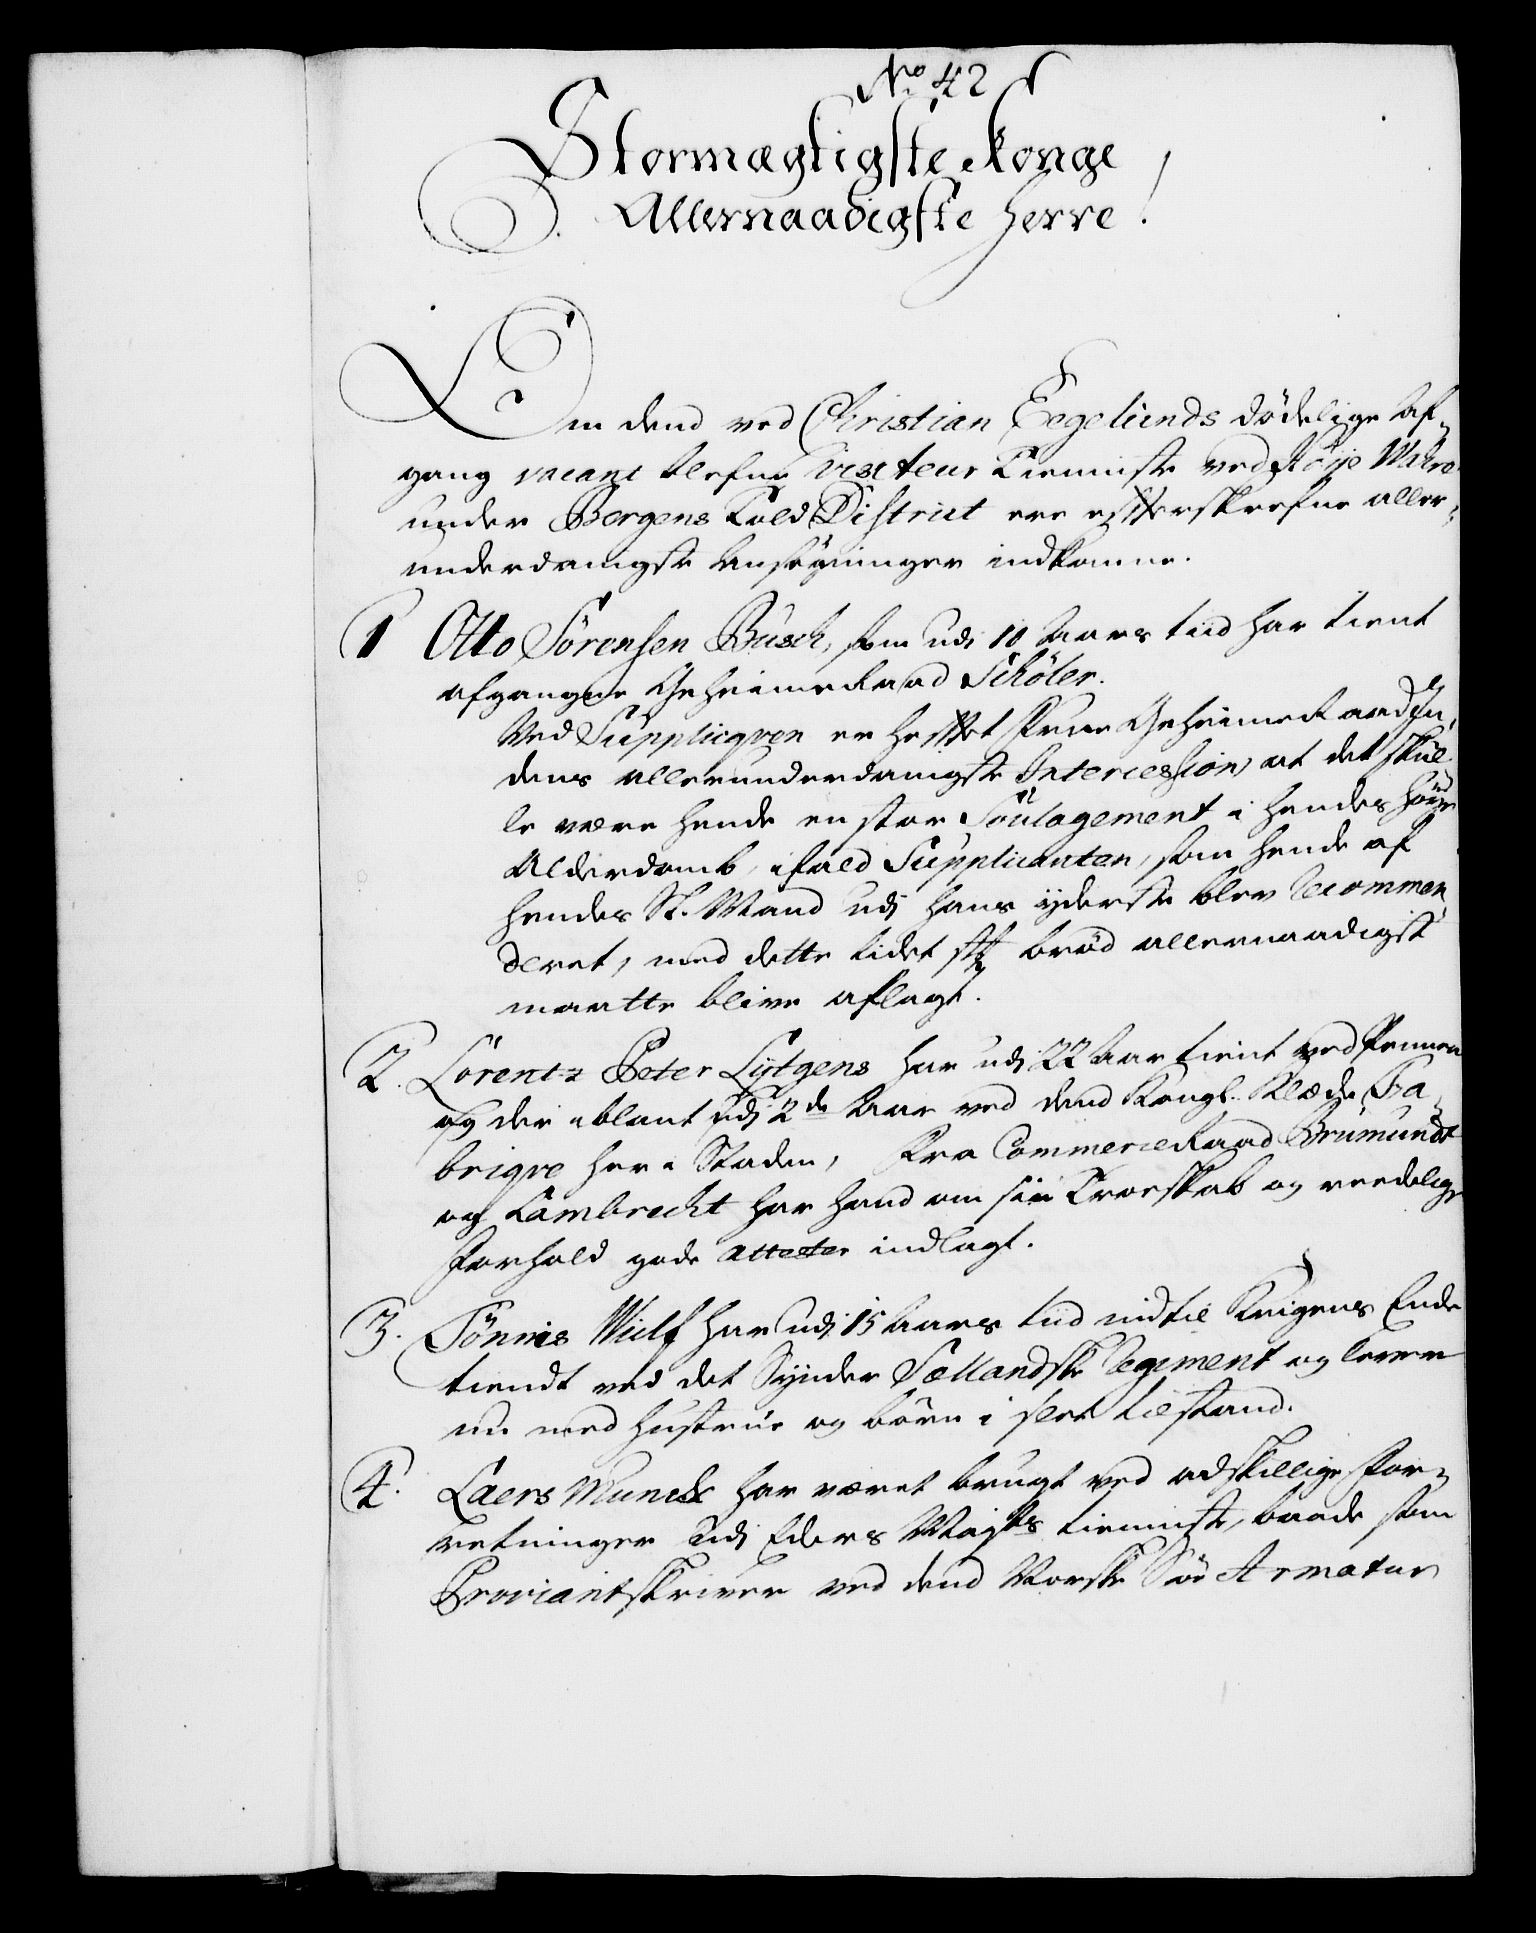 No 42
Stormægtigste Konge
Allernaadigste Herre!
Om dend ved Christian Eegelunds dödelige Af-
gang vacant blefne Visiteur Tienniste ved
under Bergens Told District ere efterskrefne aller-
underdanigste Ansögninger indkomne.
1 Otto Sörensen Busch, som udi 10 Aars tiid har tient
afgangne Geheimeraad Schöler.
Ved Suppliqven er heftet Frue Geheimeraad In-
dens allerunderdanigste Intercession, at det skul-
le være hende en stor Soulagement i hendes höye
Alderdomb, ifald Supplicanten, som hende af
hendes Sl. Mand udi hans yderste blev recommen-
deret, med dette lidet st: bröd allernaadigst
maatte blive aflagt.
2. Lorentz Peter Lytgens har udi 22 Aar tient ved Pennen
og der iblant udi 2de Aar ved dend Kongl. Klæde Fa-
briqve her i Staden, Fra Commerceraad Brumundt
og Lambrecht har hand om sin Troeskab og reedelige
Forhold gode attester indlagt.
3. Tönnis Wulf har udi 15 Aars tiid indtil Krigens Ende
tiendt ved det Synder Sællandske Regiment og lever
nu med Hustrue og börn i slet tilstand.
4. Laers Munck har været brugt ved adskillige For-
retninger udi Eders Mayts tienniste, baade som
Proviantskriver ved dend Norske Söe Armatur